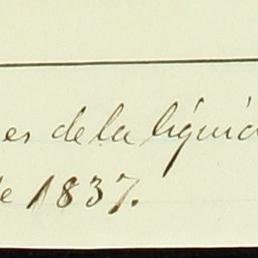 es de la liquid
de 1837.